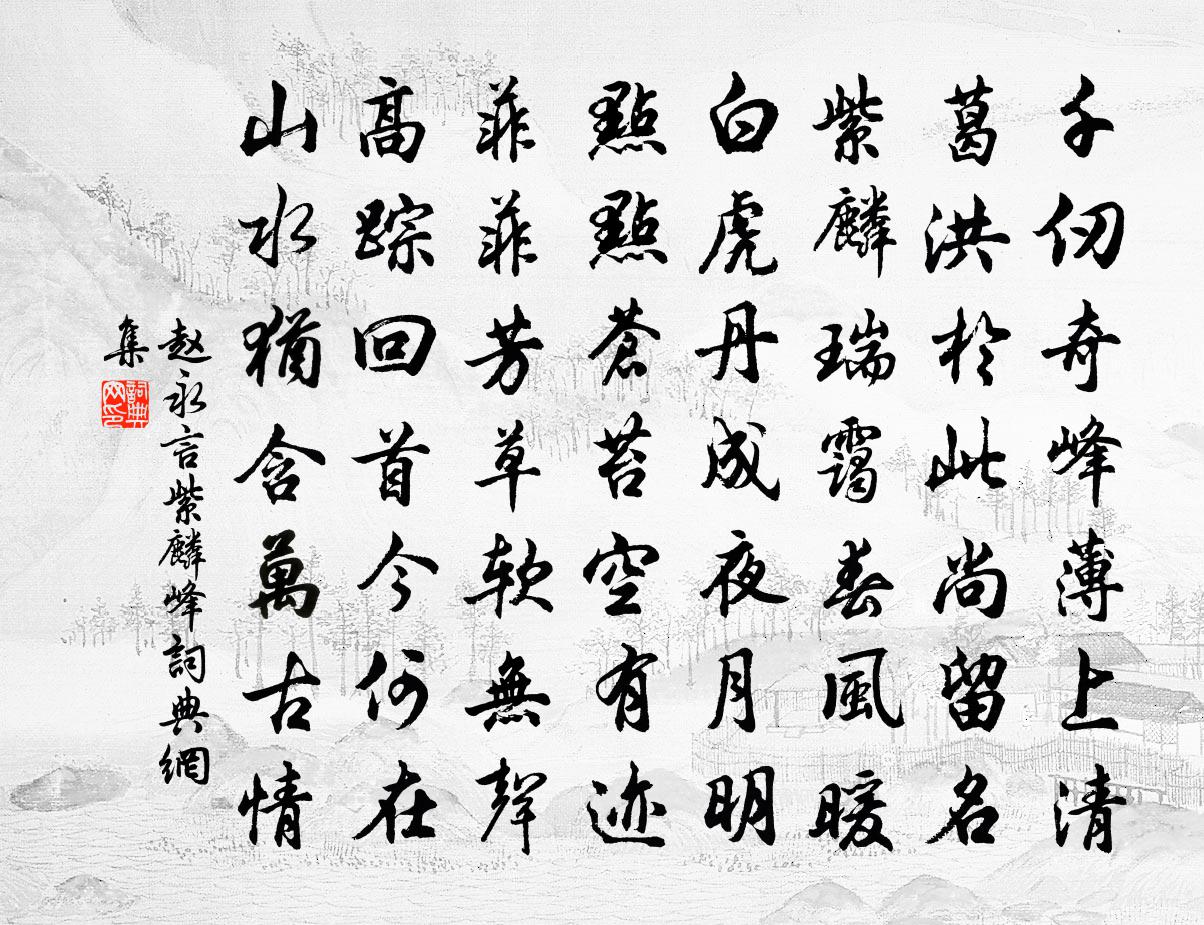 千仞奇峰薄上清
葛洪於此尚留名
紫麟瑞靄春風暖
白虎丹成夜月明
點點蒼苔空有迹
菲菲芳草軟無聲
高踪回首今何在
山水猶含萬古情
赵永言紫麟峰詞典網
集
詞典
网印